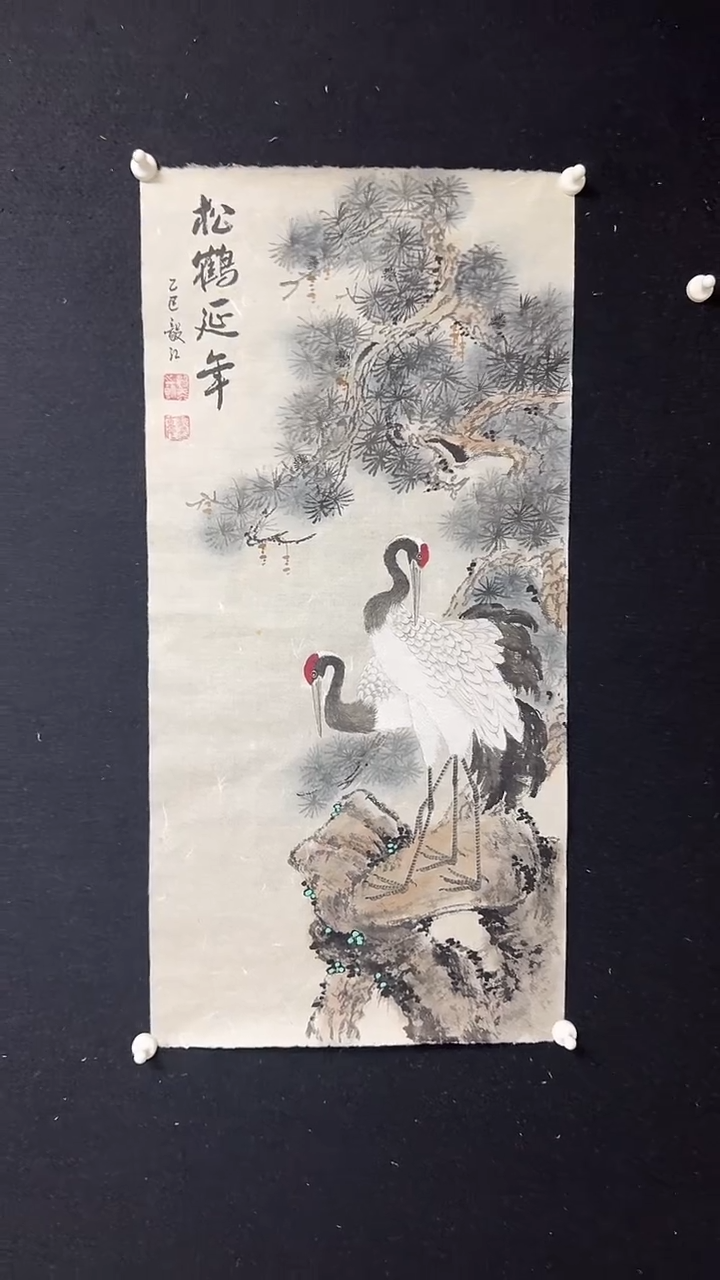 松鶴延年
乙巳毅江